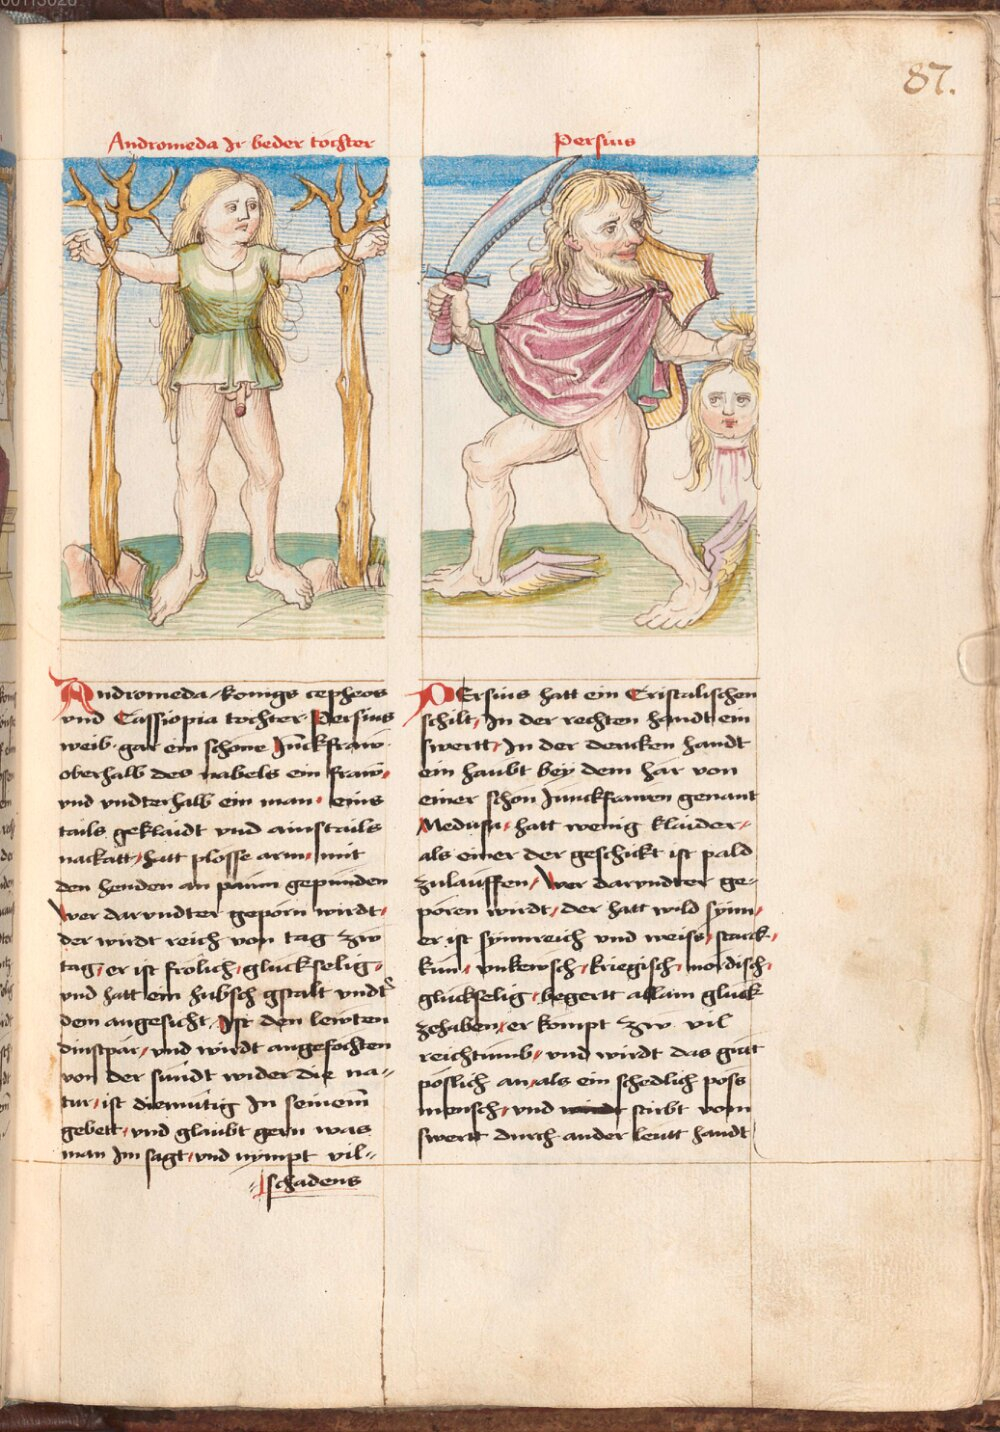 87.
Andromeda Ir beder tochter
Andromeda konigs cepheos
vnd Cassiopia tochter. Persius
weib. gar ein schone Junckfraw.
oberhalb des nabels ein fraw,
vnd vndterhalb ein man. eins
tails geklaidt vnd ainstails
nackatt, hatt plosse arm, mit
den henden an paum gepunden
Wer darvndter geporn wirdt,
der wirdt reich von tag zw
tag, er ist frolich, gluckselig,
vnd hatt ein hubsch gstalt vndt
dem angesicht. Ist den lewten
dinstpar, vnd wirdt angefochten
von der sundt wider die na-
tur, ist diemutig In seinem
gebett, vnd glaubt gern was
man Im sagt, vnd nympt vil
schadens
Persius
PErsius hatt ein Cristalischen
schilt, In der rechten handt ein
swertt, In der dencken handt
ein haubt bey dem har von
einer schon Junckfrawen genant
Medusa, hatt wenig klaider,
als einer der geschickt ist pald
zulauffen, Wer darvndter ge-
poren wirdt, der hatt wild synn,
er ist synnreich vnd weiss, starck,
kun, vnkewsch, kriegisch, mordisch,
gluckselig, begertt allain gluck
zehaben, er kompt zw vil
reichtumb, vnd wirdt das gut
poslich an, als ein schedlich poss
mensch, vnd stirbt vom
swertt durch ander leutt handt